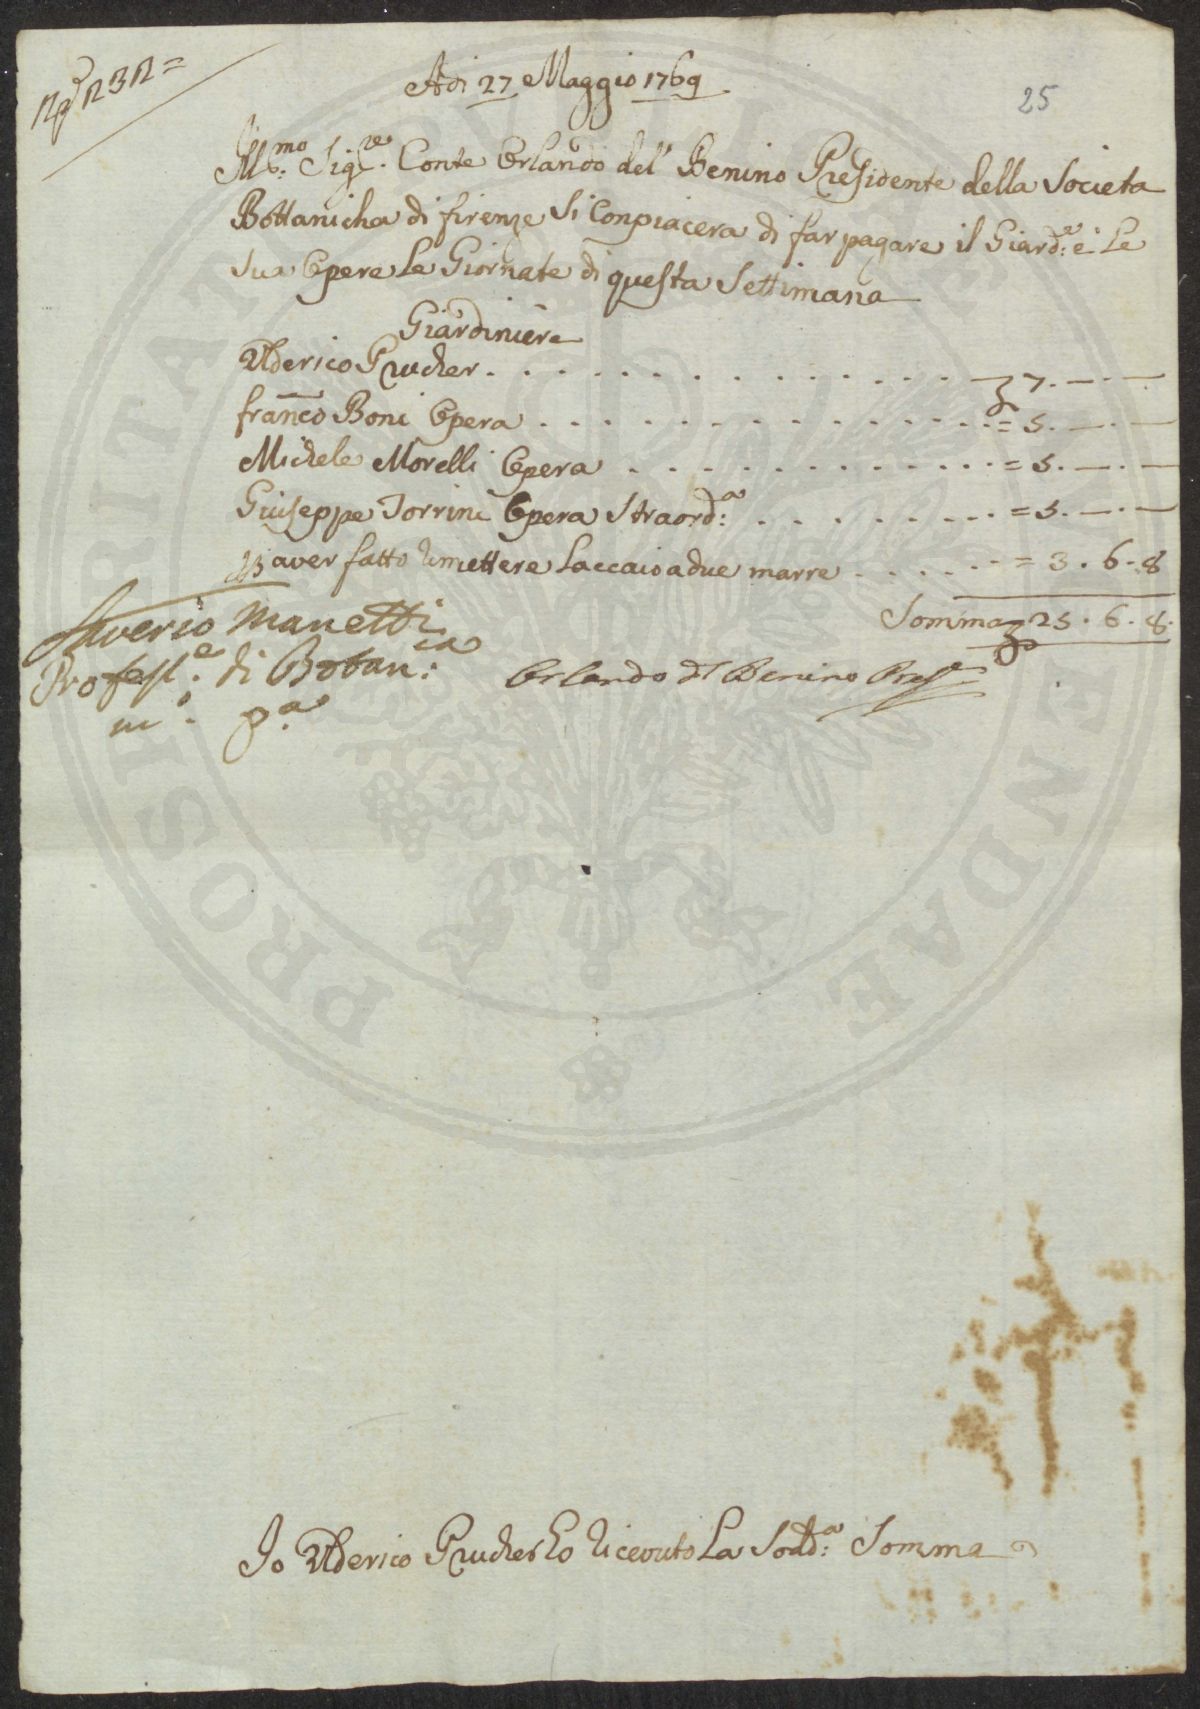 Adi 27 Maggio 1769
25
Ill:mo Sig:re Conte Orlando del Benino Presidente della Societa
Bottanicha di firenze Si Conpiacera di far pagare il Giard:e e Le
Sua Opere Le Giornate di questa Settimana
Giardiniere
Ulderico Prucher . . . . . . . . . . . . . . 7. — . —
Franco Boni Opera . . . . . . . . . . . . . = 5. — . —
Michele Morelli Opera . . . . . . . . . . . = 5. — . —
Giuseppe Torrini Opera Straord:a . . . . . . . = 5. — . —
aver fatto rimettere Laccaio a due marre . . . . . . = 3 . 6 . 8
Somma 25 . 6 . 8
Saverio Manetti
Profess:e di Botan:ca
m:o pa
Orlando dl Benino Pres:e
Io Ulderico Prucher ho riceuuto La Sodd:a Somma
PROSPERITATI PUBLICAE AUGENDAE